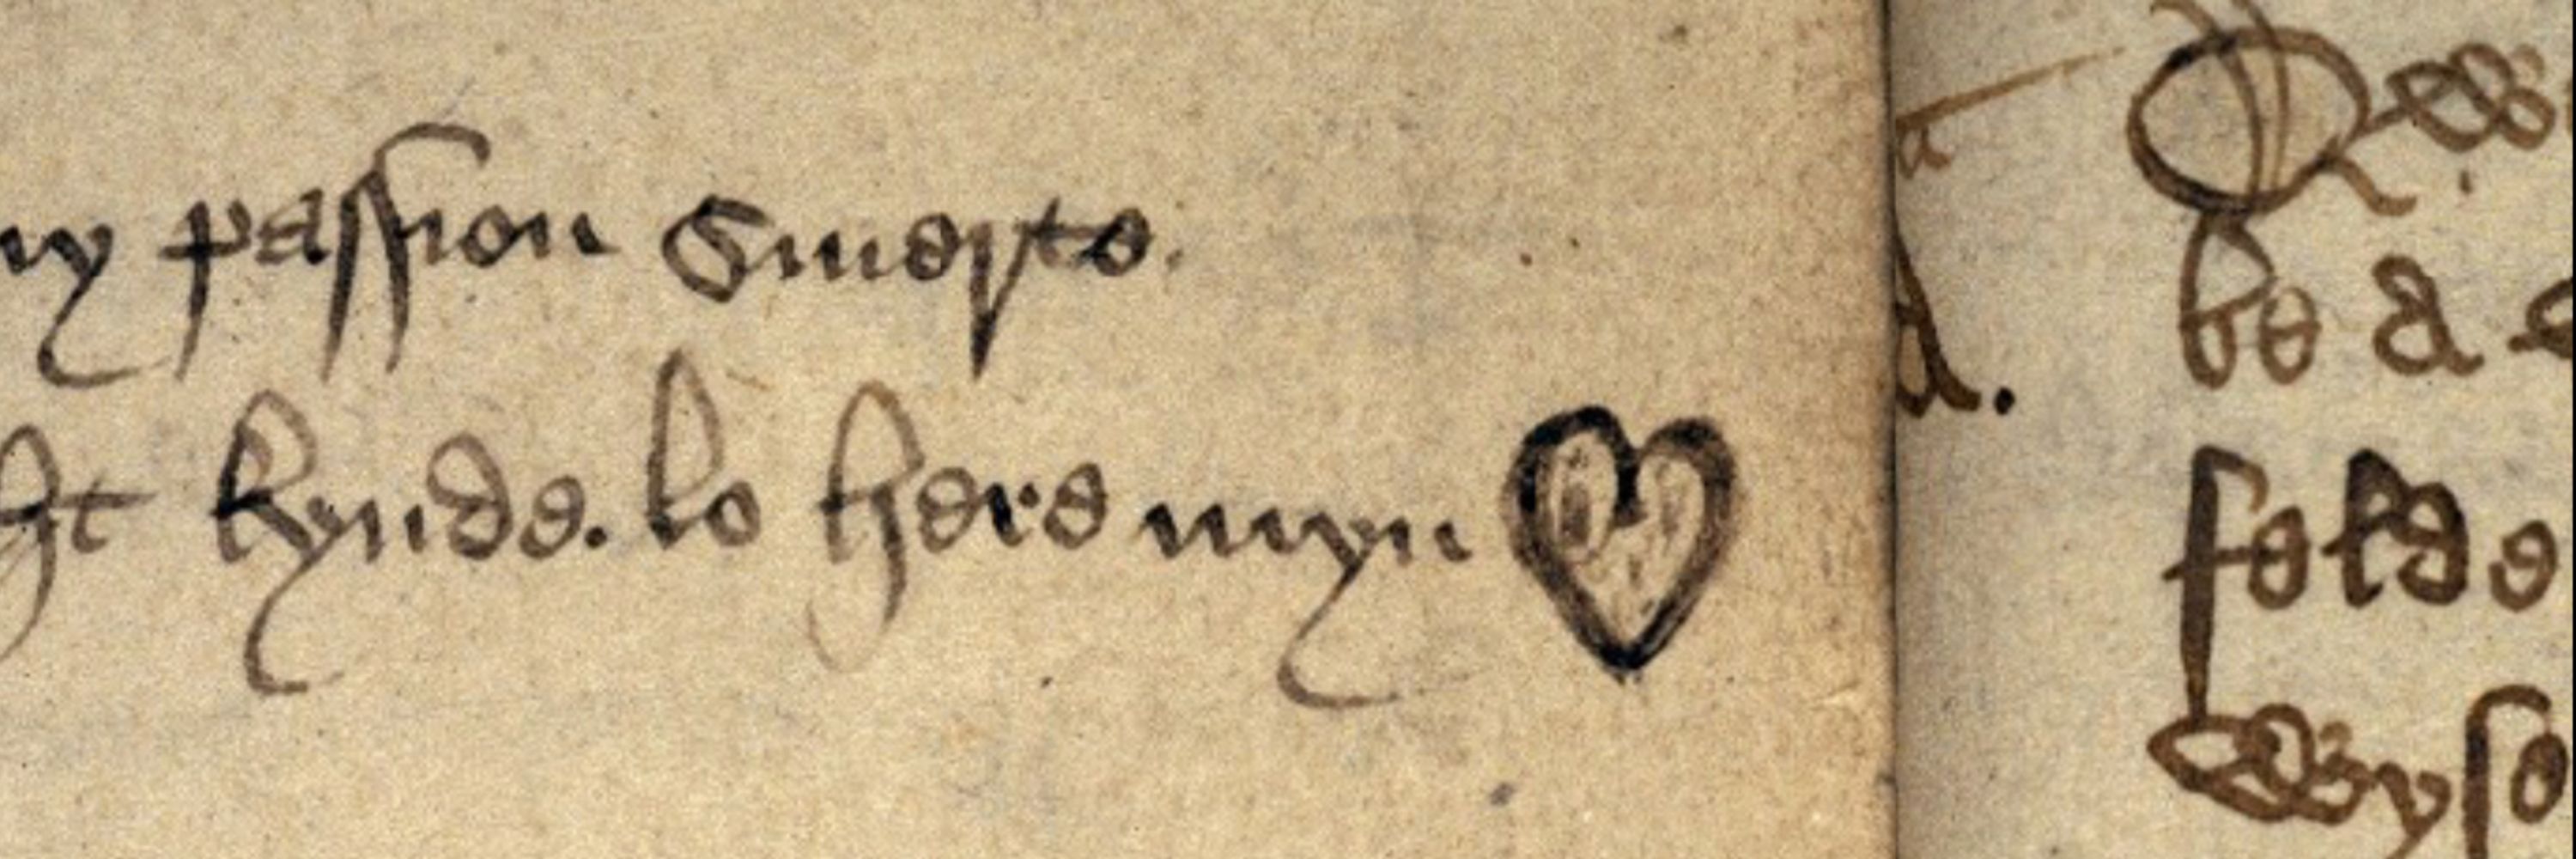 my passion Smerte.
ht kynde. lo here myn
be a
felde